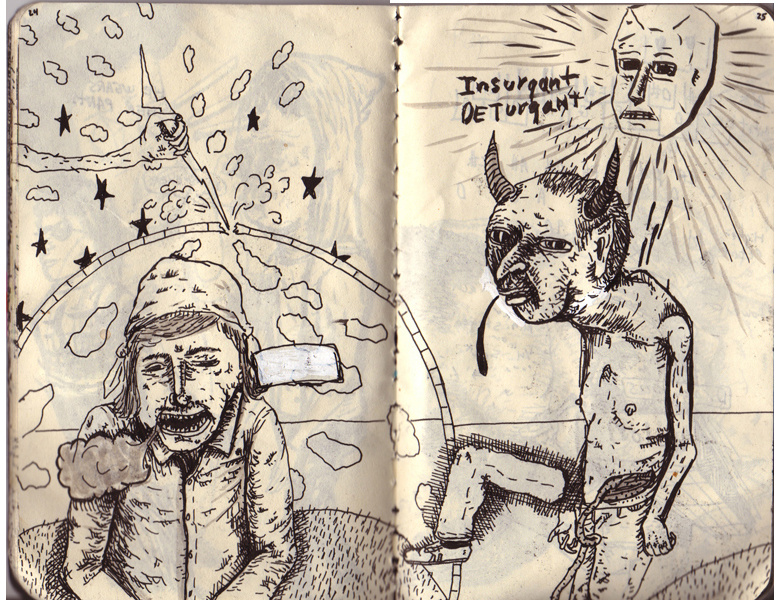 24
25
Insurgant
DETurgant